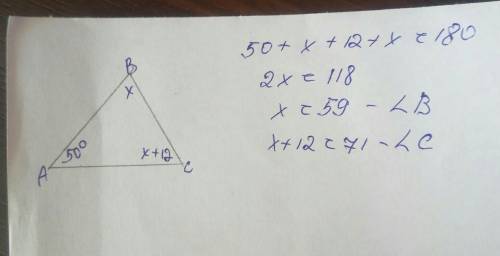 50 + x + 12 + x = 180
2x = 118
x = 59 - ∠B
x + 12 = 71 - ∠C
B
x
50°
x+12
A
C